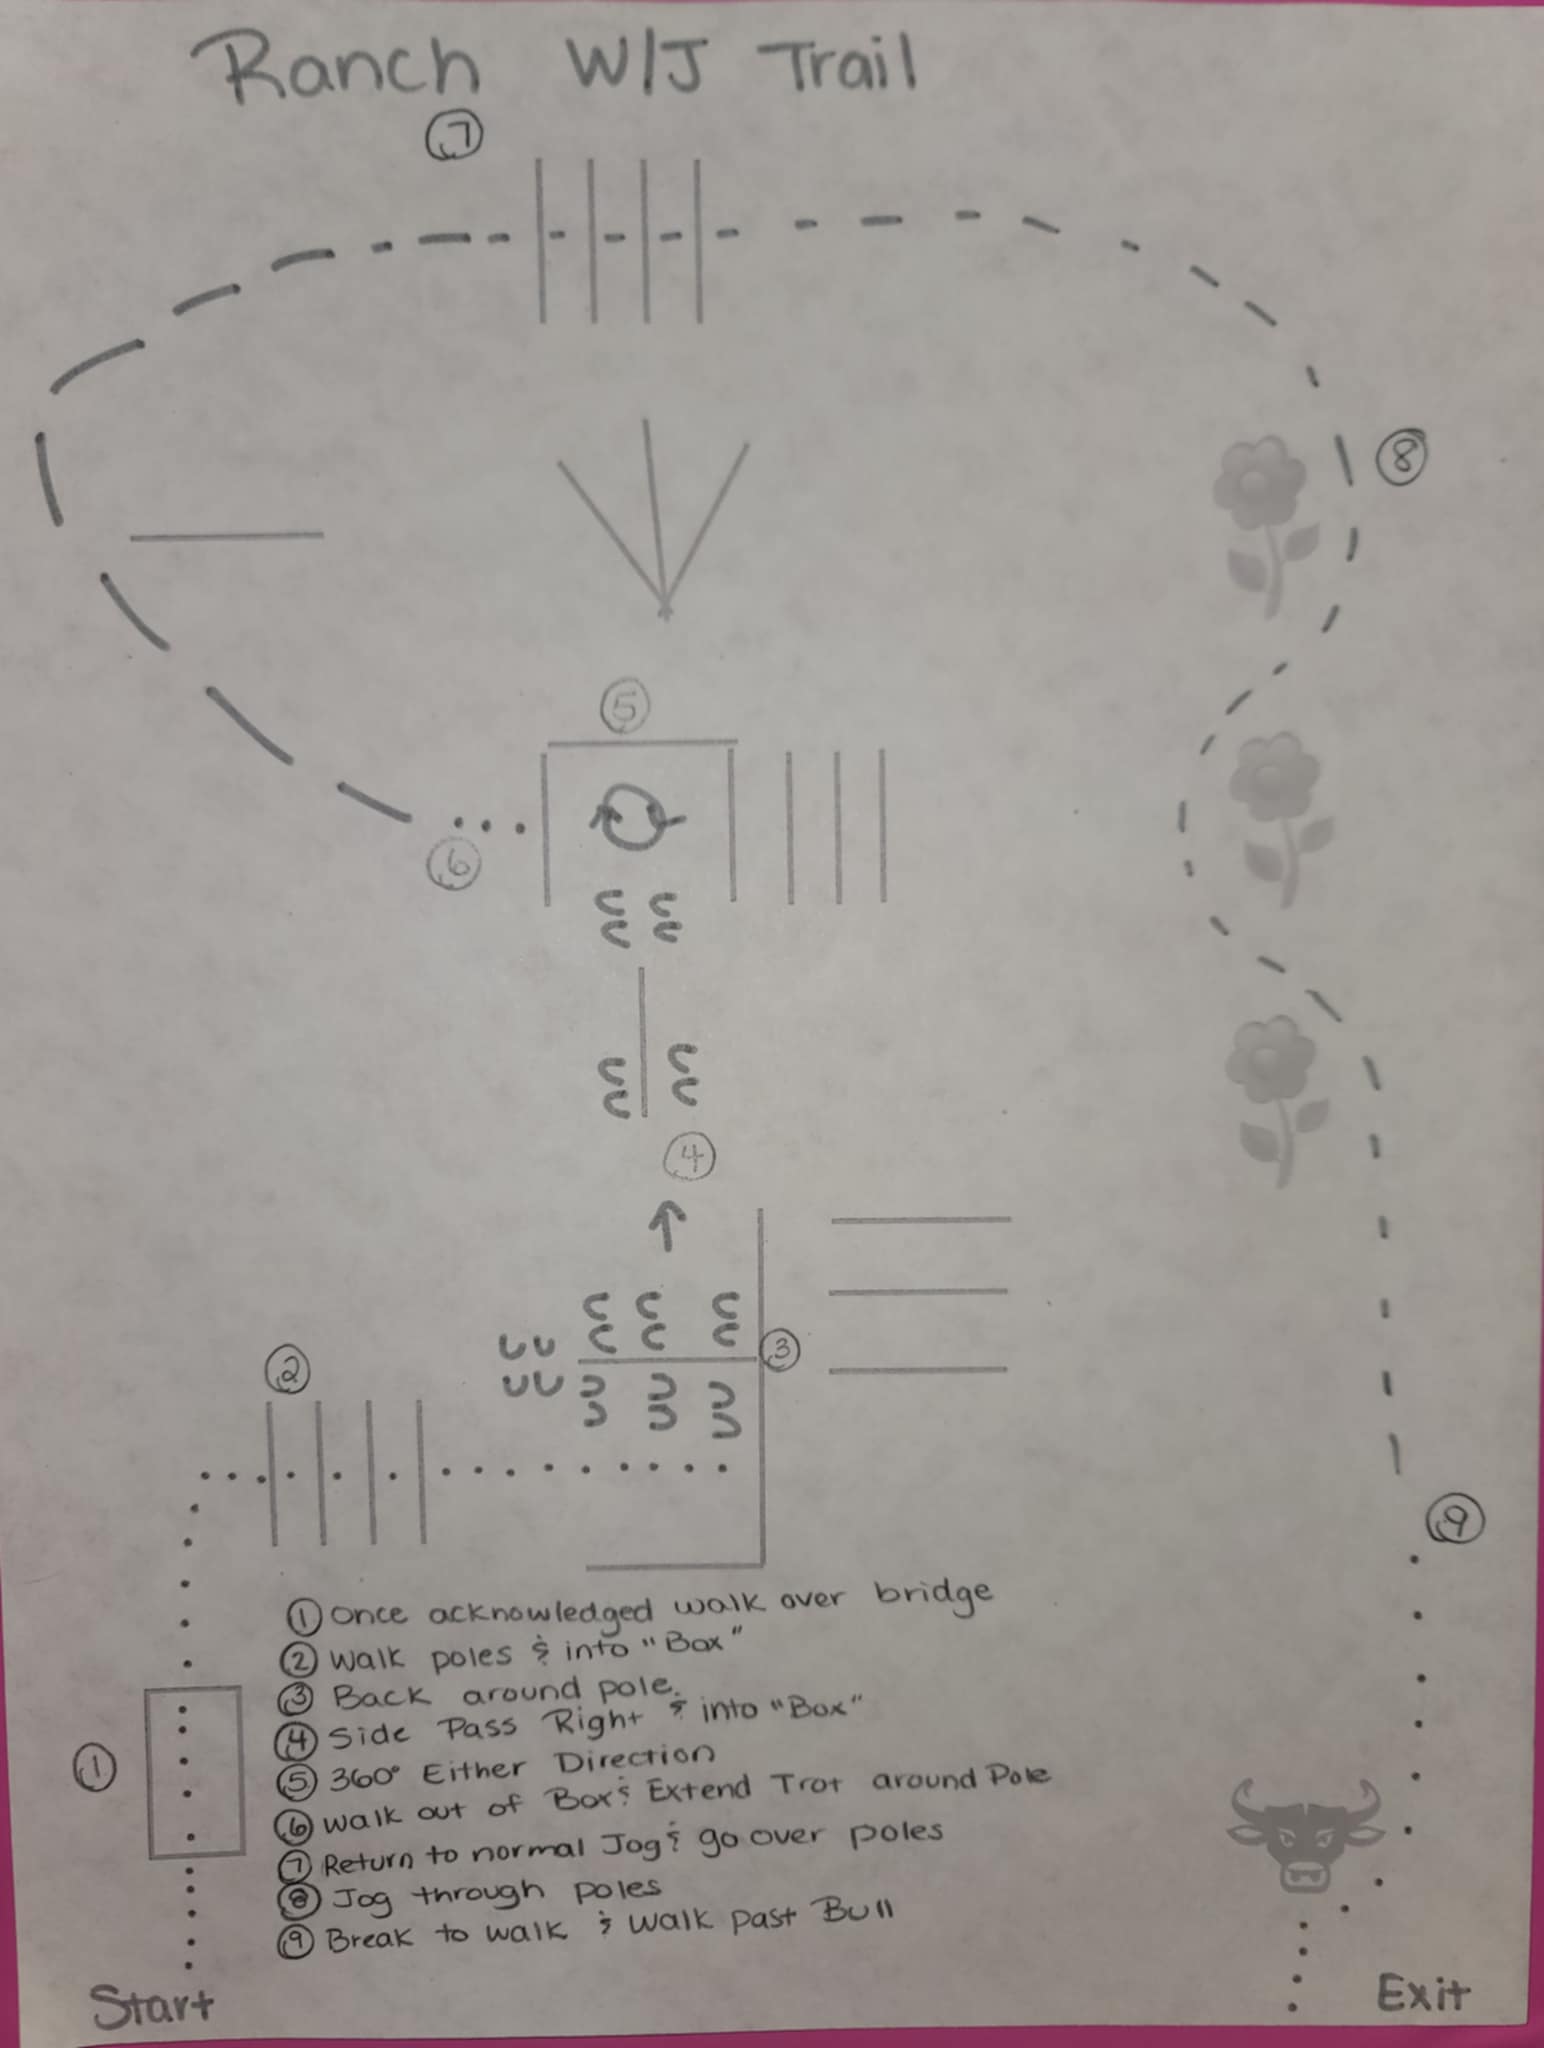 Ranch W/J Trail
7
8
5
6
4
3
2
9
① Once acknowledged walk over bridge
② Walk poles & into "Box"
③ Back around pole.
④ Side Pass Right & into "Box"
⑤ 360° Either Direction
⑥ Walk out of Box & Extend Trot around Pole
⑦ Return to normal Jog & go over poles
⑧ Jog through poles
⑨ Break to walk & walk past Bull
1
Start
Exit